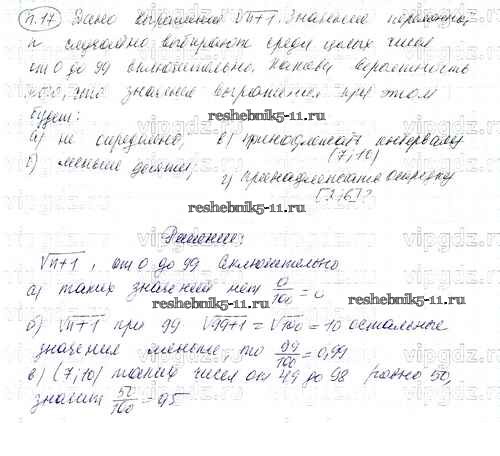 п.17) Дано выражение √n+1. Значения переменной
n случайно выбирают среди целых чисел
от 0 до 99 включительно. Какова вероятность
того, что значения выражения при этом
будет:
а) не определено; в) принадлежать интервалу
(7;10)
б) меньше десяти; г) принадлежать отрезку
[3;6]?
reshebnik5-11.ru
reshebnik5-11.ru
Решение:
√n+1, от 0 до 99 включительно
а) таких значений нет 0/100 = 0
reshebnik5-11.ru
б) √n+1 при 99 √99+1 = √100 = 10 остальные
значения меньше, то 99/100 = 0,99
в) (7;10) таких чисел от 49 до 98 равно 50,
значит 50/100 = 0,5
reshebnik5-11.ru
vipgdz.ru